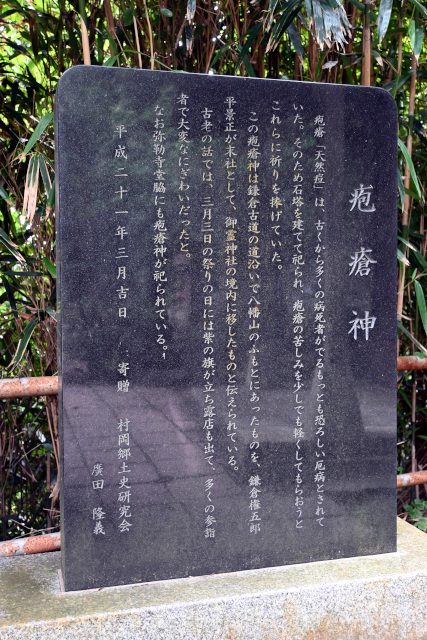 疱瘡神
疱瘡「天然痘」は、古くから多くの病死者がでるもっとも恐ろしい厄病とされて
いた。そのため石塔を建てて祀られ、疱瘡の苦しみを少しでも軽くしてもらおうと
これらに祈りを捧げていた。
この疱瘡神は鎌倉古道の道沿いで八幡山のふもとにあったものを、鎌倉権五郎
平景正が末社として、御霊神社の境内に移したものと伝えられている。
古老の話では、三月三日の祭りの日には紫の旗が立ち露店も出て、多くの参詣
者で大変なにぎわいだったと。
なお弥勒寺堂脇にも疱瘡神が祀られている。
平成二十一年三月吉日
寄贈 村岡郷土史研究会
廣田 隆義